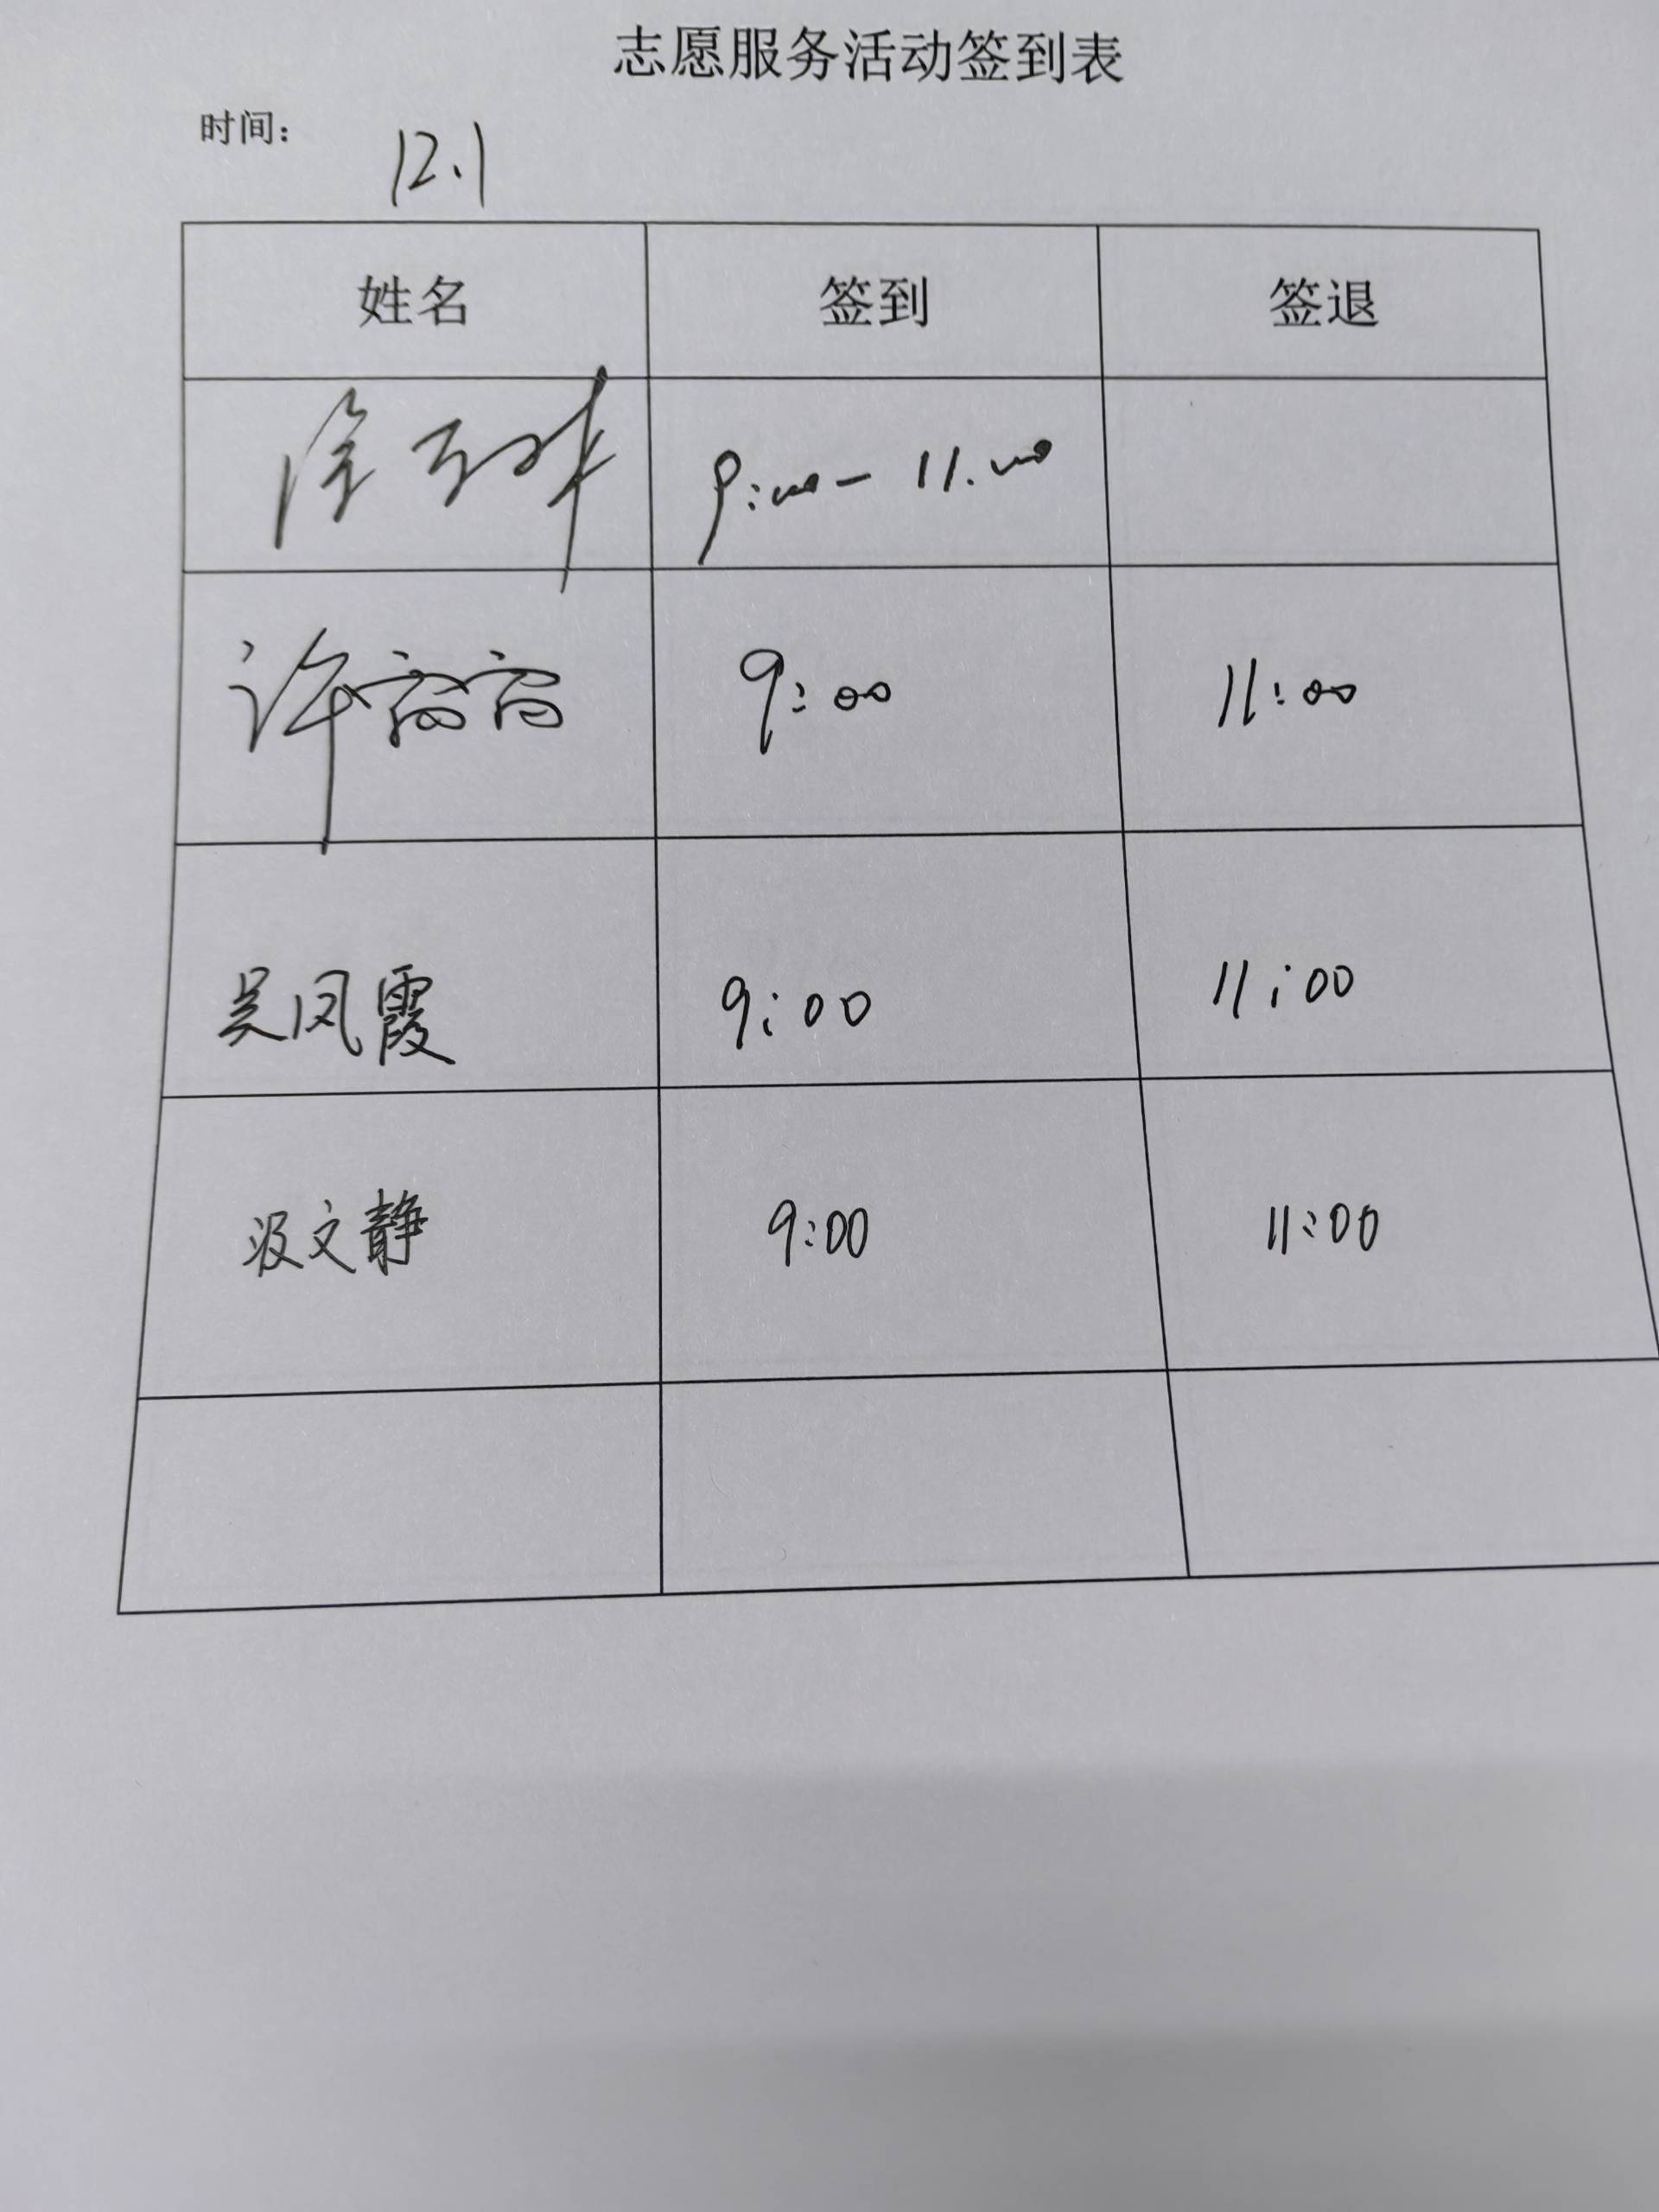 志愿服务活动签到表
时间：
12.1
姓名 签到 签退
徐 9:00-11.00
许 9:00 11:00
吴凤霞 9:00 11:00
汲文静 9:00 11:00